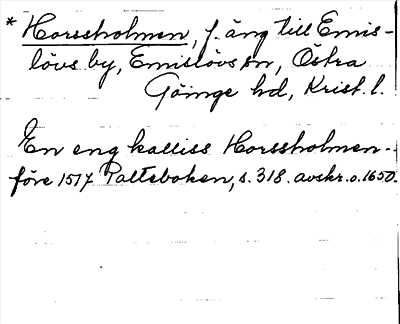 * Horssholmen, f. äng till Emis-
lövs by, Emislövs sn, Östra
Göinge hd, Krist. l.
En eng kalliss Horssholmen.
före 1517 Palteboken, s. 318. avskr. o. 1650.